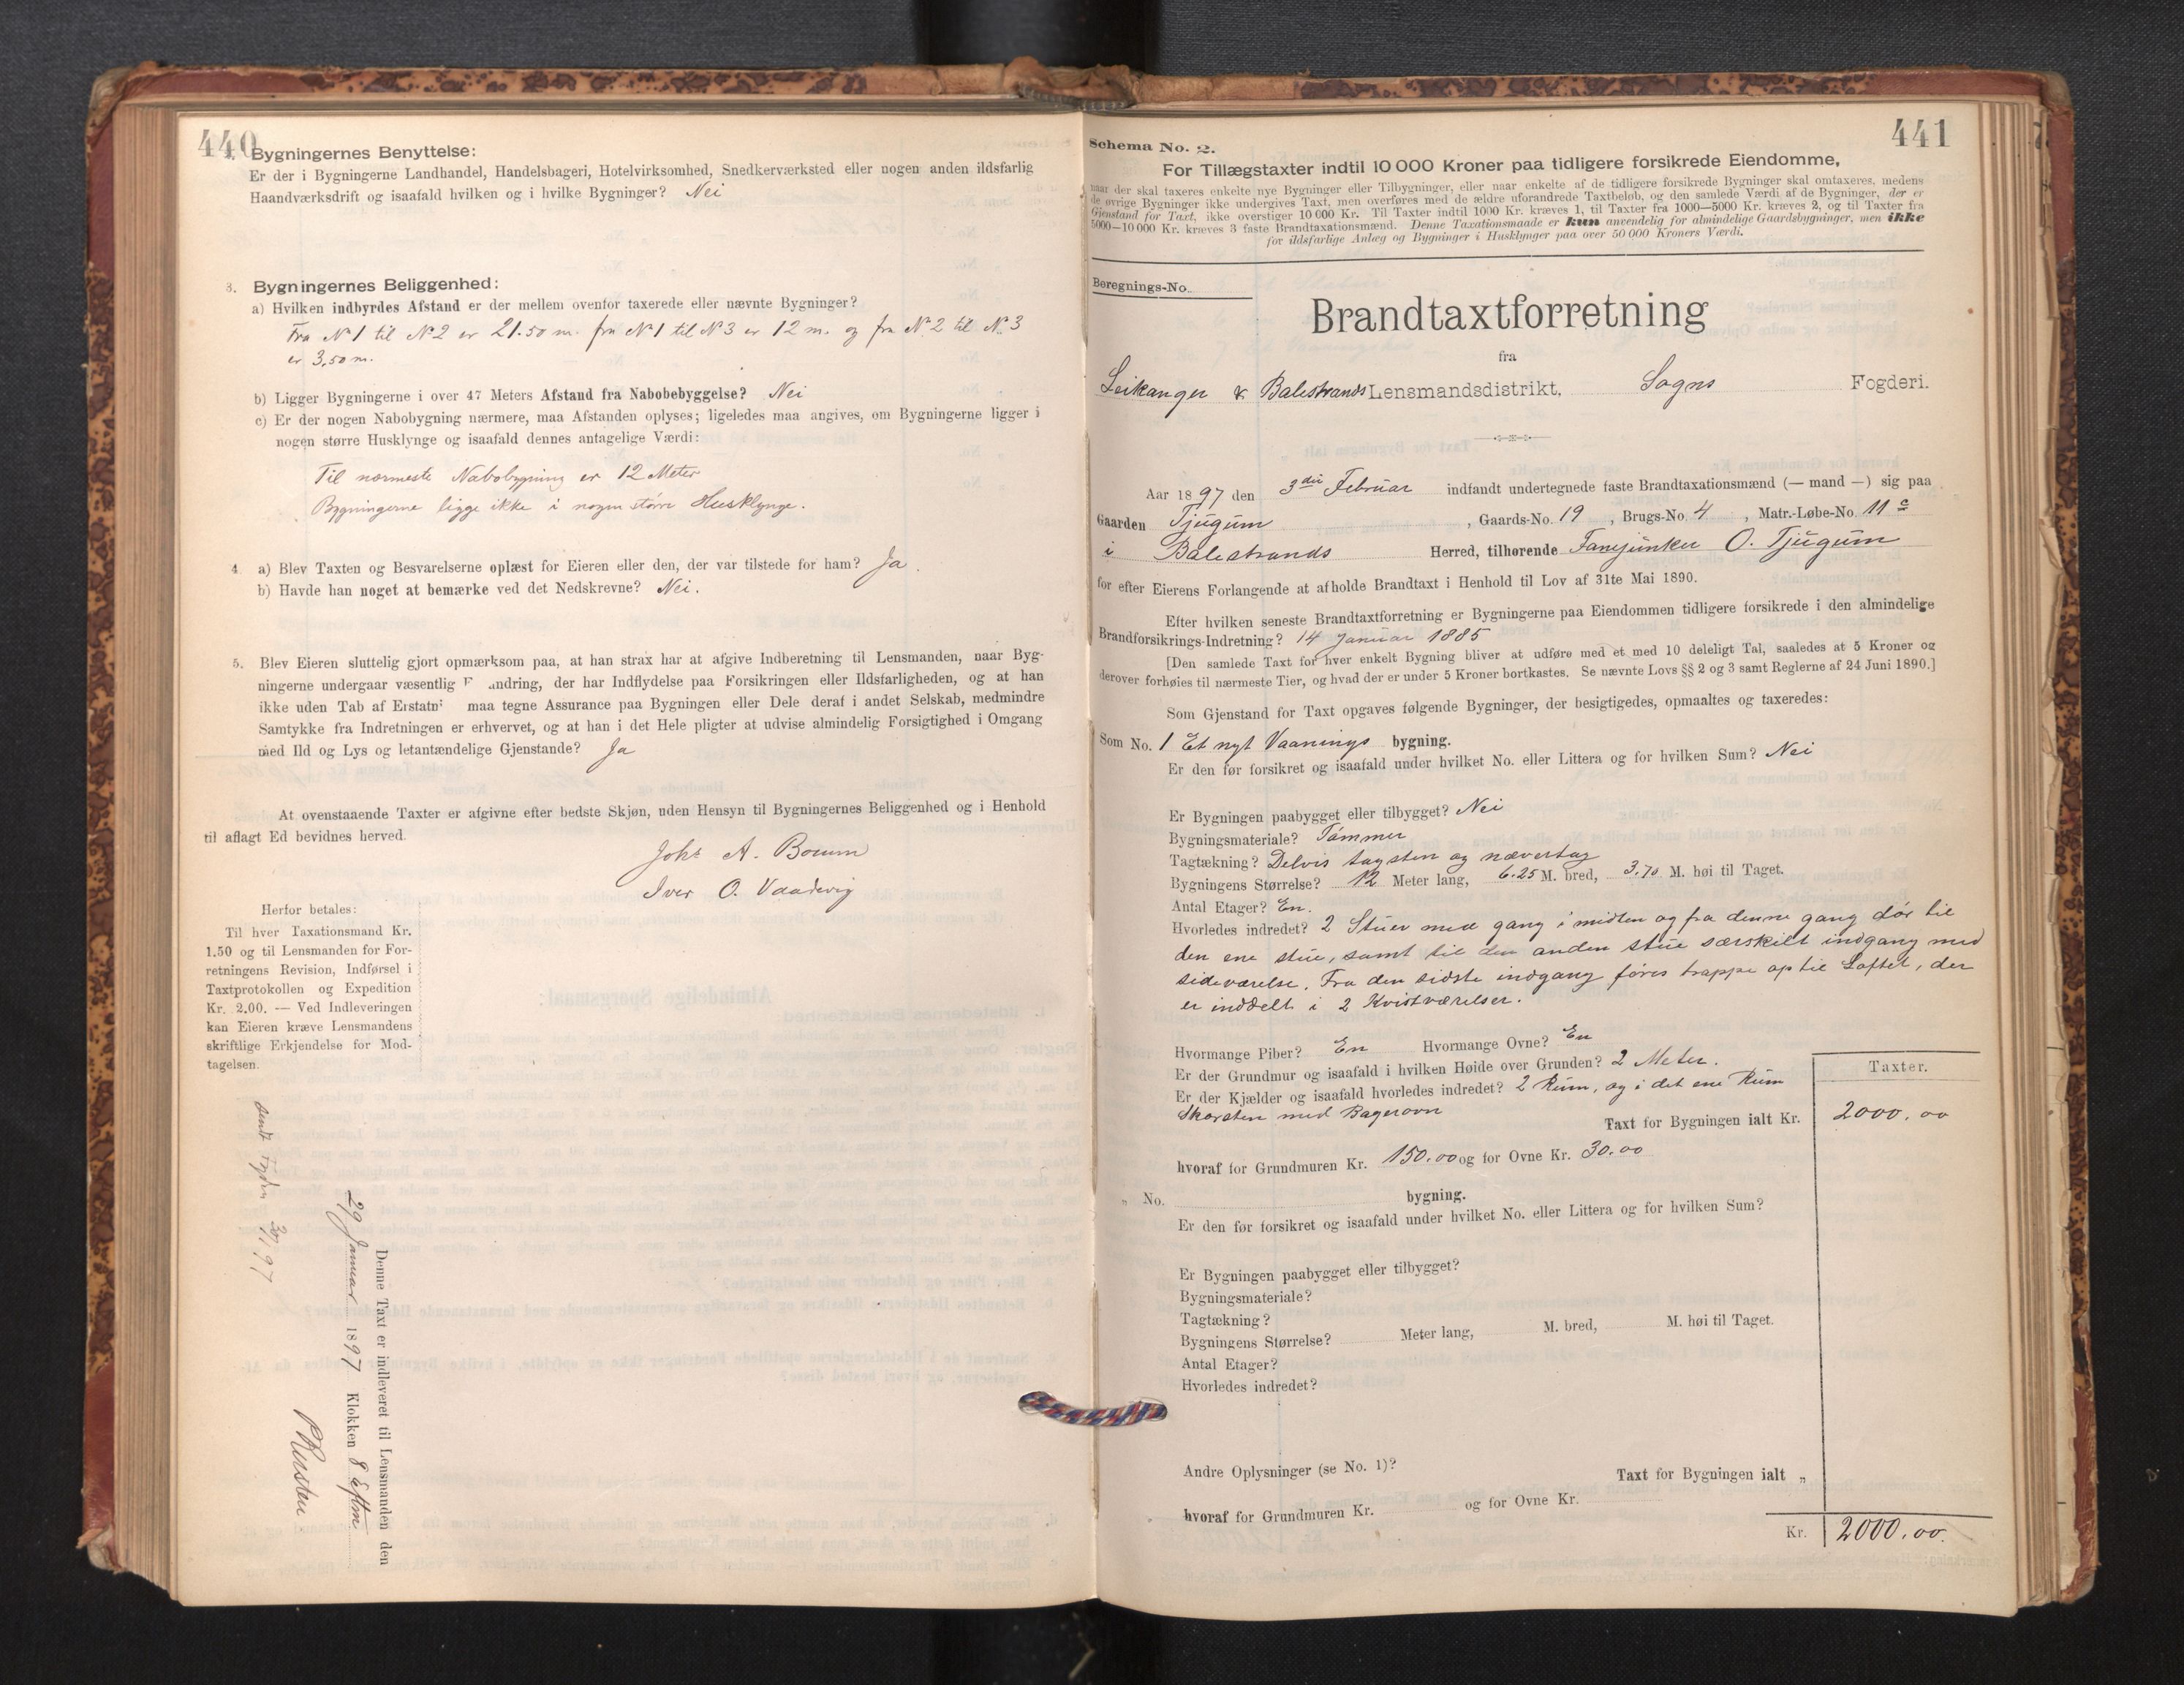 440
Bygningernes Benyttelse:
Er der i Bygningerne Landhandel, Handelsbageri, Hotelvirksomhed, Snedkerværksted eller nogen anden ildsfarlig
Haandværksdrift og isaafald hvilken og i hvilke Bygninger? Nei
3. Bygningernes Beliggenhed:
a) Hvilken indbyrdes Afstand er der mellem ovenfor taxerede eller nævnte Bygninger?
Fra No 1 til No 2 er 21.50 m. fra No 1 til No 3 er 12 m. og fra No 2 til No. 3
er 3,50 m.
b) Ligger Bygningerne i over 47 Meters Afstand fra Nabobebyggelse? Nei
c) Er der nogen Nabobygning nærmere, maa Afstanden oplyses; ligeledes maa angives, om Bygningerne ligger i
nogen større Husklynge og isaafald dennes antagelige Værdi:
Til nærmeste Nabobygning er 12 Meter
Bygningerne ligge ikke i nogen større Husklynge.
4. a) Blev Taxten og Besvarelserne oplæst for Eieren eller den, der var tilstede for ham? Ja.
b) Havde han noget at bemærke ved det Nedskrevne? Nei.
5. Blev Eieren sluttelig gjort opmærksom paa, at han strax har at afgive Indberetning til Lensmanden, naar Byg-
ningerne undergaar væsentlig F andring, der har Indflydelse paa Forsikringen eller Ildsfarligheden, og at han
ikke uden Tab af Erstatn maa tegne Assurance paa Bygningen eller Dele deraf i andet Selskab, medmindre
Samtykke fra Indretningen er erhvervet, og at han i det Hele pligter at udvise almindelig Forsigtighed i Omgang
med Ild og Lys og letantændelige Gjenstande? Ja
At ovenstaaende Taxter er afgivne efter bedste Skjøn, uden Hensyn til Bygningernes Beliggenhed og i Henhold
til aflagt Ed bevidnes herved.
Johs A. Bouum
Iver O. Vaadevig
Herfor betales:
Til hver Taxationsmand Kr.
1.50 og til Lensmanden for For-
retningens Revision, Indførsel i
Taxtprotokollen og Expedition
Kr. 2.00. — Ved Indleveringen
kan Eieren kræve Lensmandens
skriftlige Erkjendelse for Mod-
tagelsen.
Denne Taxt er indleveret til Lensmanden den
29 Januar 1897 Klokken 8 Eftm
441
Schema No. 2.
For Tillægstaxter indtil 10 000 Kroner paa tidligere forsikrede Eiendomme,
naar der skal taxeres enkelte nye Bygninger eller Tilbygninger, eller naar enkelte af de tidligere forsikrede Bygninger skal omtaxeres, medens
de øvrige Bygninger ikke undergives Taxt, men overføres med de ældre uforandrede Taxtbeløb, og den samlede Værdi af de Bygninger, der er
Gjenstand for Taxt, ikke overstiger 10 000 Kr. Til Taxter indtil 1000 Kr. kræves 1, til Taxter fra 1000—5000 Kr. kræves 2, og til Taxter fra
5000—10 000 Kr. kræves 3 faste Brandtaxationsmænd. Denne Taxationsmaade er kun anvendelig for almindelige Gaardsbygninger, men ikke
for ildsfarlige Anlæg og Bygninger i Husklynger paa over 50 000 Kroners Værdi.
Beregnings-No.
Brandtaxtforretning
fra
Leikanger & Balestrands Lensmandsdistrikt, Sogns Fogderi.
Aar 1897 den 3die Februar indfandt undertegnede faste Brandtaxationsmænd (— mand —) sig paa
Gaarden Tjugum, Gaards-No. 19, Brugs-No. 4, Matr.-Løbe-No. 11 c
i Balestrands Herred, tilhørende Fanejunker O. Tjugum
for efter Eierens Forlangende at afholde Brandtaxt i Henhold til Lov af 31te Mai 1890.
Efter hvilken seneste Brandtaxtforretning er Bygningerne paa Eiendommen tidligere forsikrede i den almindelige
Brandforsikrings-Indretning? 14 Januar 1885
[Den samlede Taxt for hver enkelt Bygning bliver at udføre med et med 10 deleligt Tal, saaledes at 5 Kroner og
derover forhøies til nærmeste Tier, og hvad der er under 5 Kroner bortkastes. Se nævnte Lovs §§ 2 og 3 samt Reglerne af 24 Juni 1890.]
Som Gjenstand for Taxt opgaves følgende Bygninger, der besigtigedes, opmaaltes og taxeredes:
Som No. 1 Et nyt Vaanings bygning.
Er den før forsikret og isaafald under hvilket No. eller Littera og for hvilken Sum? Nei
Er Bygningen paabygget eller tilbygget? Nei
Bygningsmateriale? Tømmer
Tagtækning? Delvis tagsten og nævertag
Bygningens Størrelse? 12 Meter lang, 6.25 M. bred, 3.70 M. høi til Taget.
Antal Etager? En.
Hvorledes indredet? 2 Stuer med gang i midten og fra denne gang dør til
den ene stue, samt til den anden stue særskilt indgang med
sideværelse. Fra den sidste indgang føres trappe op til Loftet, der
er inddelt i 2 Kvistværelser.
Hvormange Piber? En Hvormange Ovne? En
Er der Grundmur og isaafald i hvilken Høide over Grunden? 2 Meter.
Er der Kjælder og isaafald hvorledes indredet? 2 Rum, og i det ene Rum
Skorsten med Bagerovn
Taxter.
Taxt for Bygningen ialt Kr. 2000.00
hvoraf for Grundmuren Kr. 150.00 og for Ovne Kr. 30.00
„ No. bygning.
Er den før forsikret og isaafald under hvilket No. eller Littera og for hvilken Sum?
Er Bygningen paabygget eller tilbygget?
Bygningsmateriale?
Tagtækning?
Bygningens Størrelse? Meter lang, M. bred, M. høi til Taget.
Antal Etager?
Hvorledes indredet?
Andre Oplysninger (se No. 1)?
Taxt for Bygningen ialt „
hvoraf for Grundmuren Kr. og for Ovne Kr.
Kr. 2000.00.